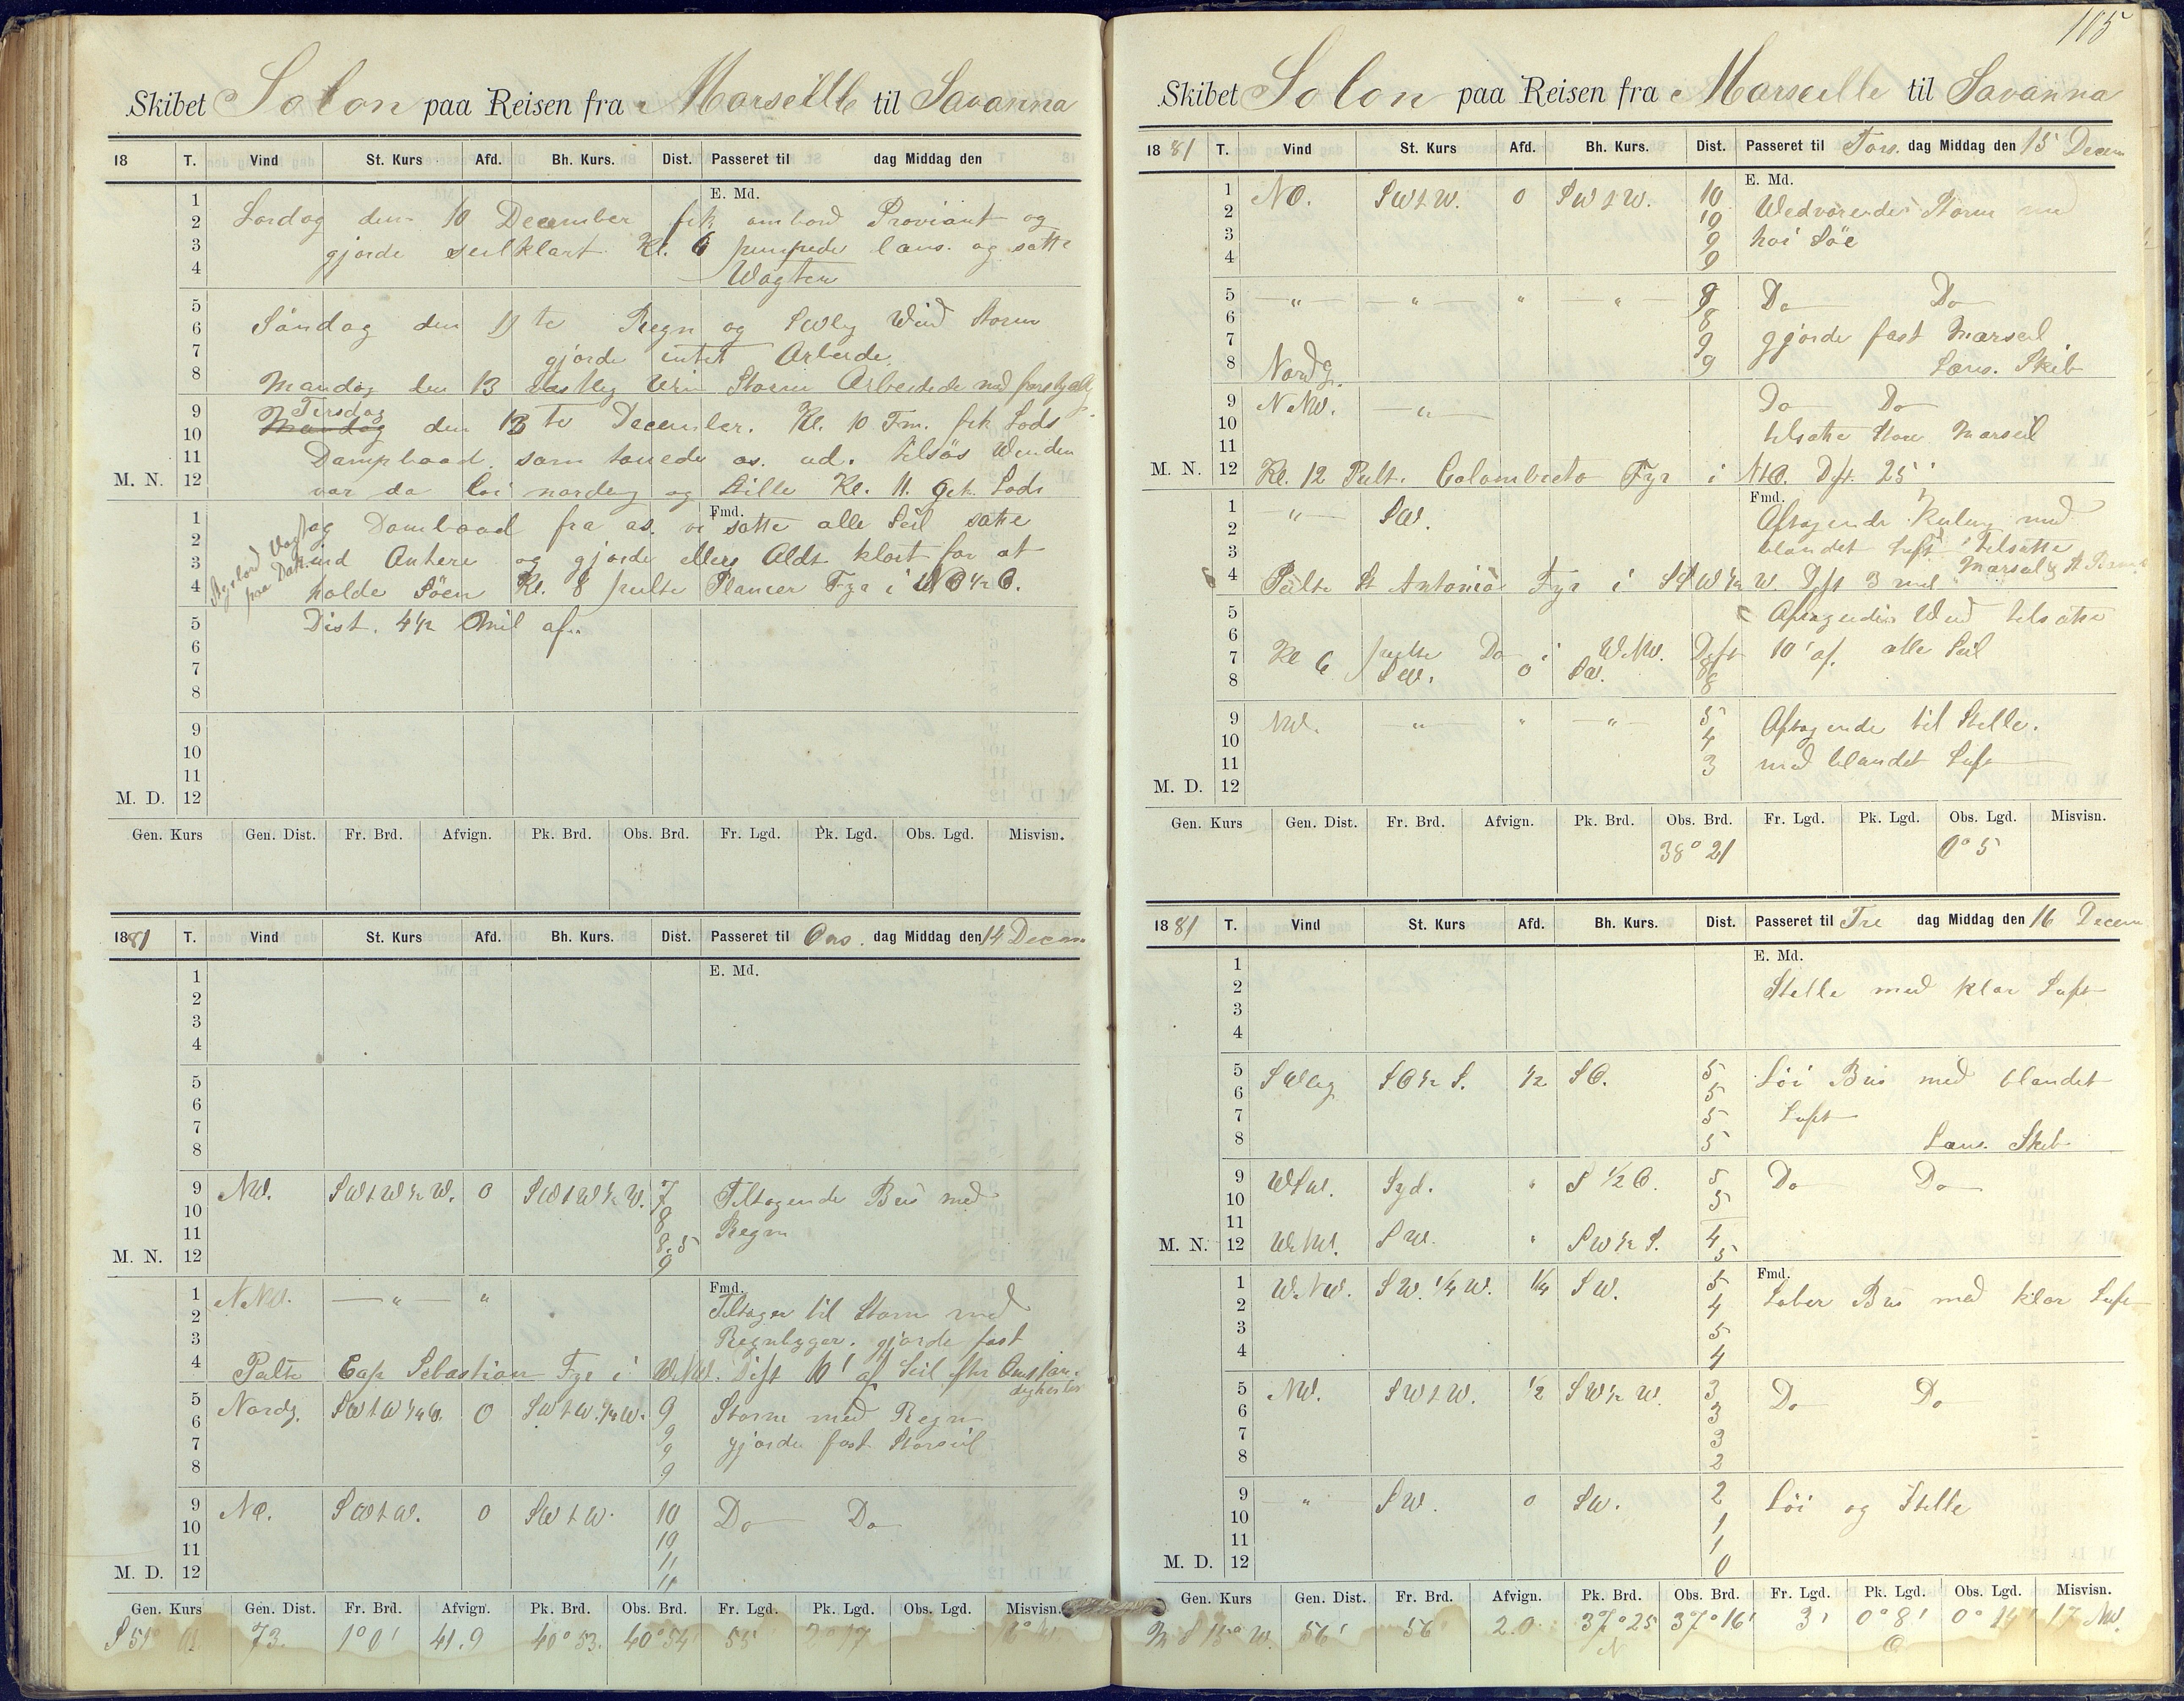 Skibet Solon paa Reisen fra Marseille til Savanna
18 T. Vind St. Kurs Afd. Bh. Kurs. Dist. Passeret til dag Middag den
E. Md.
1
2 Lørdag den 10 December fik ombord Proviant og
3 gjorde seilklart Kl. 6 pumpede læns. og satte
4 Wagten
5
6 Søndag den 11 te Regn og SWlig Wind Storm
7 gjorde intet Arbeide
8 Mandag den 13 Storm Arbeidede med forskjellig
9 Tirsdag
10 Mandag den 13 te December. Kl. 10 Fm. fik Lods
11 Dampbaad. som touede os. ud. tilsøs Winden
M. N. 12 var da løi nordlig og Stille Kl. 11. Gik Lods
Fmd.
1 og Dambaad fra os. vi satte alle Seil satte
2
3 ind Ankere og gjorde ellers Aldt klart for at
4 holde Søen Kl. 8 peilte Planeer Fyr i NO ½ O.
paa Dæk
5 Dist. 4½ Mil af.
6
7
8
9
10
11
M. D. 12
Gen. Kurs Gen. Dist. Fr. Brd. Afvign. Pk. Brd. Obs. Brd. Fr. Lgd. Pk. Lgd. Obs. Lgd. Misvisn.
1881 T. Vind St. Kurs Afd. Bh. Kurs. Dist. Passeret til Ons. dag Middag den 14 Decem
E. Md.
1
2
3
4
5
6
7
8
9 NW. SWtW½W. 0 SWtW½W. 7 Tiltagende Bris med
10 8
11 8.5 Regn
M. N. 12 9
Fmd.
1 NNW. — " — " Tiltager til Storm med
2
3 Regnbyger. gjorde fast
4 Peilte Cap Sebastian Fyr i WNW. Dist 10' af Seil efter Omstændigheder
5 Nordg. SWtW¼W. 0 SWtW.¼W. 9 Storm med Regn
6 9
7 9 gjorde fast Storseil
8 9
9 NO. SWtW. 0 SWtW. 10 Do Do
10 10
11 11
M. D. 12 11
Gen. Kurs Gen. Dist. Fr. Brd. Afvign. Pk. Brd. Obs. Brd. Fr. Lgd. Pk. Lgd. Obs. Lgd. Misvisn.
S 51° 73. 1° 0' 41.9 40° 53. 40° 54' 55 2° 17
105
Skibet Solon paa Reisen fra Marseille til Savanna
1881 T. Vind St. Kurs Afd. Bh. Kurs. Dist. Passeret til Tors. dag Middag den 15 Decem
E. Md.
1 NO. SWtW. 0 SWtW. 10 Wedvarende Storm med
2 10
3 9 høi Söe
4 9
5 — " — — " — " — " — 9 Do Do
6 8
7 9 gjorde fast Marseil
8 Nordg. 9 Læns. Skib
9 NNW. — " — Do Do
10 tilsatte Store Marseil
11
M. N. 12 Kl. 12 Peilt. Colombreto Fyr i NtO. Dist. 25'
Fmd.
1 " SW. Aftagende Kuling med
2 blandet luft tilsatte
3 Marseil
4 Peilte St Antonio Fyr i SSW½W. Dist 3 mil
5 Aftagendes Wind tilsatte
6
7 Kl 6 peilte Do i WNW. Dist 10' af. alle Seil
8 SW. 0 SW. 8
8
9 NW. — " — " — " — 5 Aftagende til Stille.
10 4
11 3 med blandet Luft
M. D. 12
Gen. Kurs Gen. Dist. Fr. Brd. Afvign. Pk. Brd. Obs. Brd. Fr. Lgd. Pk. Lgd. Obs. Lgd. Misvisn.
38° 21 0° 5
1881 T. Vind St. Kurs Afd. Bh. Kurs. Dist. Passeret til Fre dag Middag den 16 Decem
E. Md.
1
2 Stille med klar Luft
3
4
5 SWlig SO½S. ½ SO. 5 Löi Bris med blandet
6 5
7 5 Luft
8 5 Læns. Skib
9 WSW. Syd. " S ½ O. 5 Do Do
10 5
11
M. N. 12 WNW. SW. " SW½S. 4
5
Fmd.
1 WNW. SW.¼W. ¼ SW. 5 Laber Bris med klar Luft
2 4
3 5
4 4
5 NW. SWtW. ½ SW½W. 3 Do Do
6 3
7 3
8 2
9 " SW. 0 SW. 2 Löi og Stille
10 1
11 1
M. D. 12 0
Gen. Kurs Gen. Dist. Fr. Brd. Afvign. Pk. Brd. Obs. Brd. Fr. Lgd. Pk. Lgd. Obs. Lgd. Misvisn.
S 15° W. 56' 56' 2.0 37° 25 37° 16' 3' 0° 8' 0° 14' 17 NW.
N O